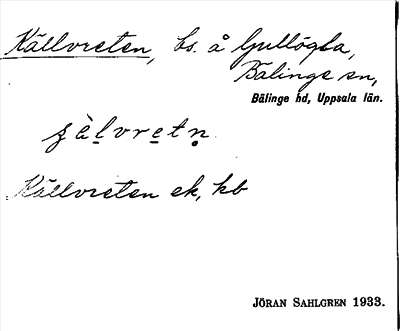 Källvreten, bs. å Ljusllögda,
Bälinge sn,
Bälinge hd, Uppsala län.
Källvreten ek, kb
JÖRAN SAHLGREN 1933.